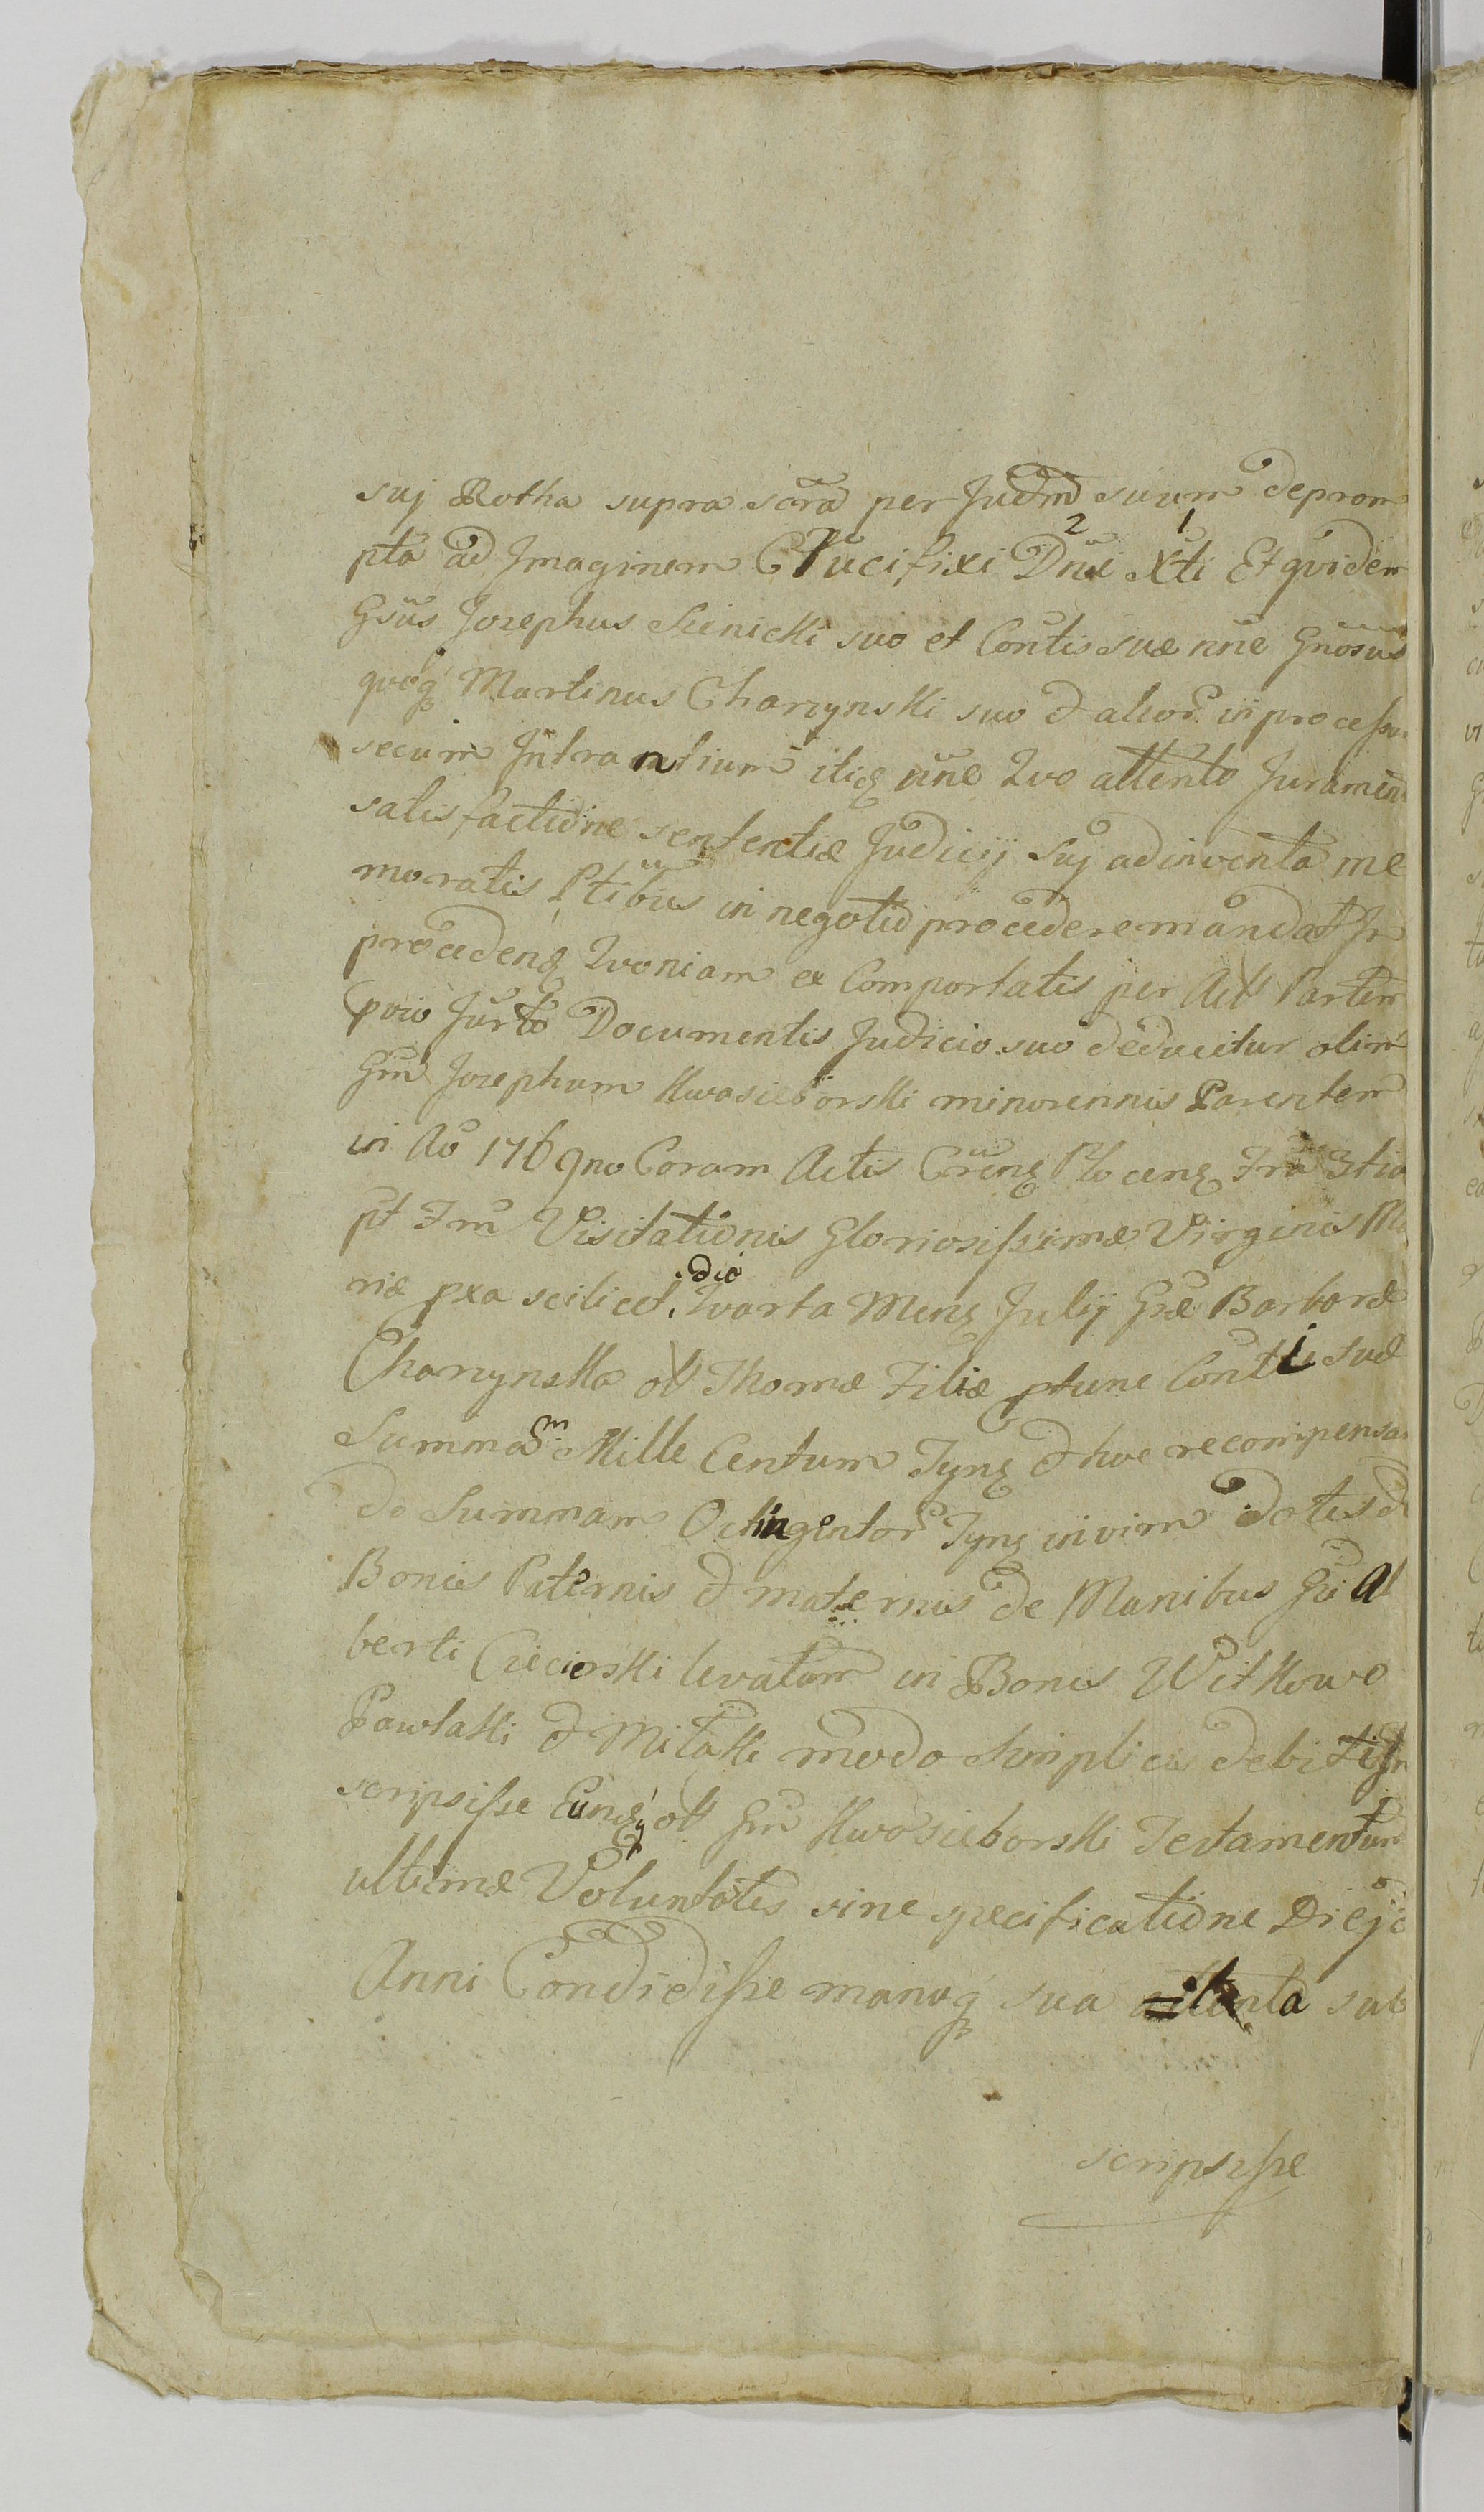 suj Rotha supra scra per Judm suum deprom
pta ad Imaginem Crucifixi Dni Xti Et qvidem
Gsus Josephus Sienicki suo et Contis suæ nñe Gnosus
qvoq Martinus Charzynski suo & alior in processu
secum Intrantium itiq nñe Qvo attento Jurament
satisfactione sententiæ Judicij Suj adinventa me
moratis Ptibus in negotio procedere mandat In
procedenq Qvoniam ex Comportatis per Act Partem
pvio Jurto Documentis Judicio suo deducitur olim
Gm Josephum Kwasieborski minorennis Parentem
in Ao 1769no Coram Actis Crenq Plocenq Fra 3tia
pt Fm Visitationis Gloriosissimæ Virginis Ma
riæ pxa scilicet die Qvarta Menq Julij Gsæ Barbaræ
Charzynska olt Thomæ Filiæ ptunc Conti suæ
Summam Mille Centum Tynq & hoc recompensan
do Summam Octingentor Tynq in vim dotis de
Bonis Paternis & maternis de Manibus Gsi Al
berti Cieciorski levatam in Bonis Witkowo
Pawlaki & Mitaki modo Simplicis debiti In
scripsisse Eunq olt Gm Kwasieborski Testamentum
ultimæ Voluntatis sine specificatione Diej &
Anni Condidisse manuq sua sub
scripsisse